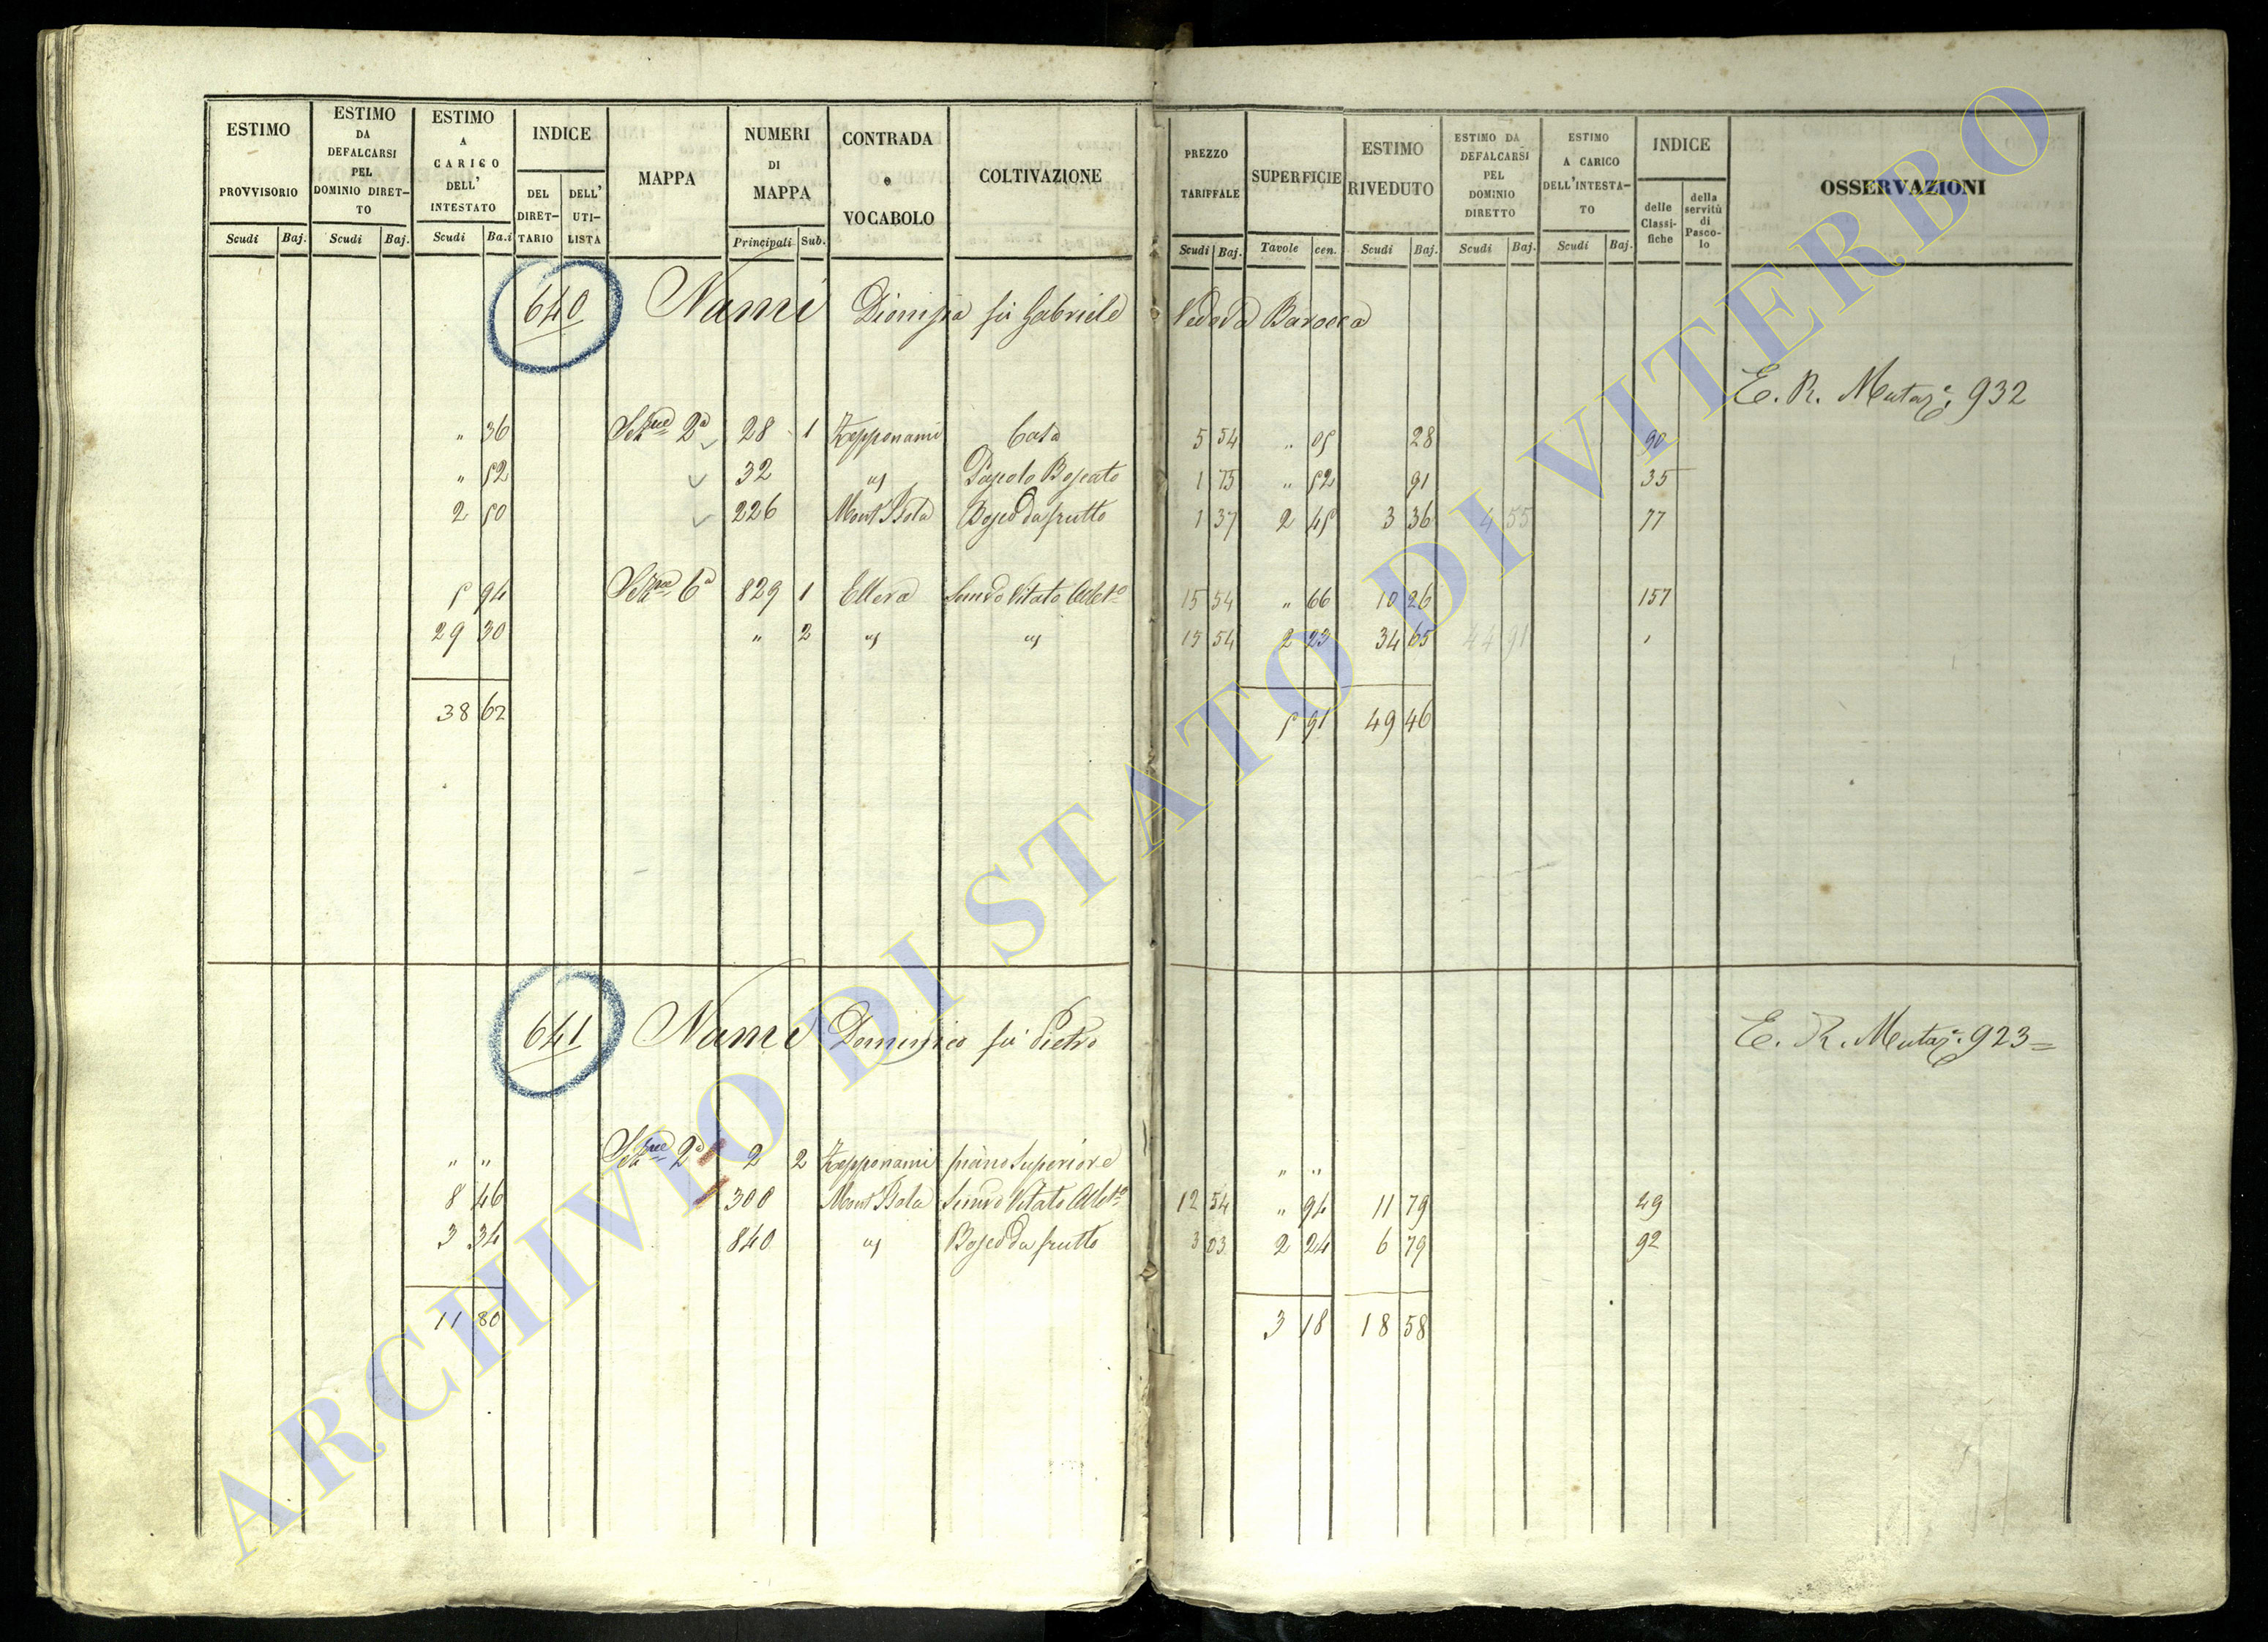 ESTIMO PROVVISORIO | ESTIMO DA DEFALCARSI PEL DOMINIO DIRETTO | ESTIMO A CARICO DELL' INTESTATO | INDICE | MAPPA | NUMERI DI MAPPA | CONTRADA o VOCABOLO | COLTIVAZIONE | PREZZO TARIFFALE | SUPERFICIE | ESTIMO RIVEDUTO | ESTIMO DA DEFALCARSI PEL DOMINIO DIRETTO | ESTIMO A CARICO DELL'INTESTATO | INDICE | OSSERVAZIONI
DEL DIRETTARIO | DELL' UTILISTA | delle Classifiche | della servitù di Pascolo
Scudi | Baj. | Scudi | Baj. | Scudi | Ba.i | Principali | Sub. | Scudi | Baj. | Tavole | cen. | Scudi | Baj. | Scudi | Baj. | Scudi | Baj.
640 Nami Dionisia fù Gabriele Vedova Barocca
E. R. Mutaz.e 932
" 36 Sez.ne 2a 28 1 Zepponami Casa 5 54 " 05 28 90
" 52 32 " Pascolo Boscato 1 75 " 52 91 35
2 50 226 Mont'Isola Bosco da frutto 1 37 2 45 3 36 4 55 77
5 94 Sez.ne 6a 829 1 Ellera Semvo Vitato Alb.to 15 54 " 66 10 26 157
29 30 " 2 " " 15 54 2 23 34 65 44 91
38 62 5 91 49 46
641 Nami Domenico fù Pietro
E. R. Mutaz.e 923=
" " Sez.ne 2a 2 2 Zepponami piano superiore " "
8 46 300 Mont'Isola Semvo Vitato Alb.to 12 54 " 94 11 79 49
3 34 840 " Bosco da frutto 3 03 2 24 6 79 92
11 80 3 18 18 58
ARCHIVIO DI STATO DI VITERBO